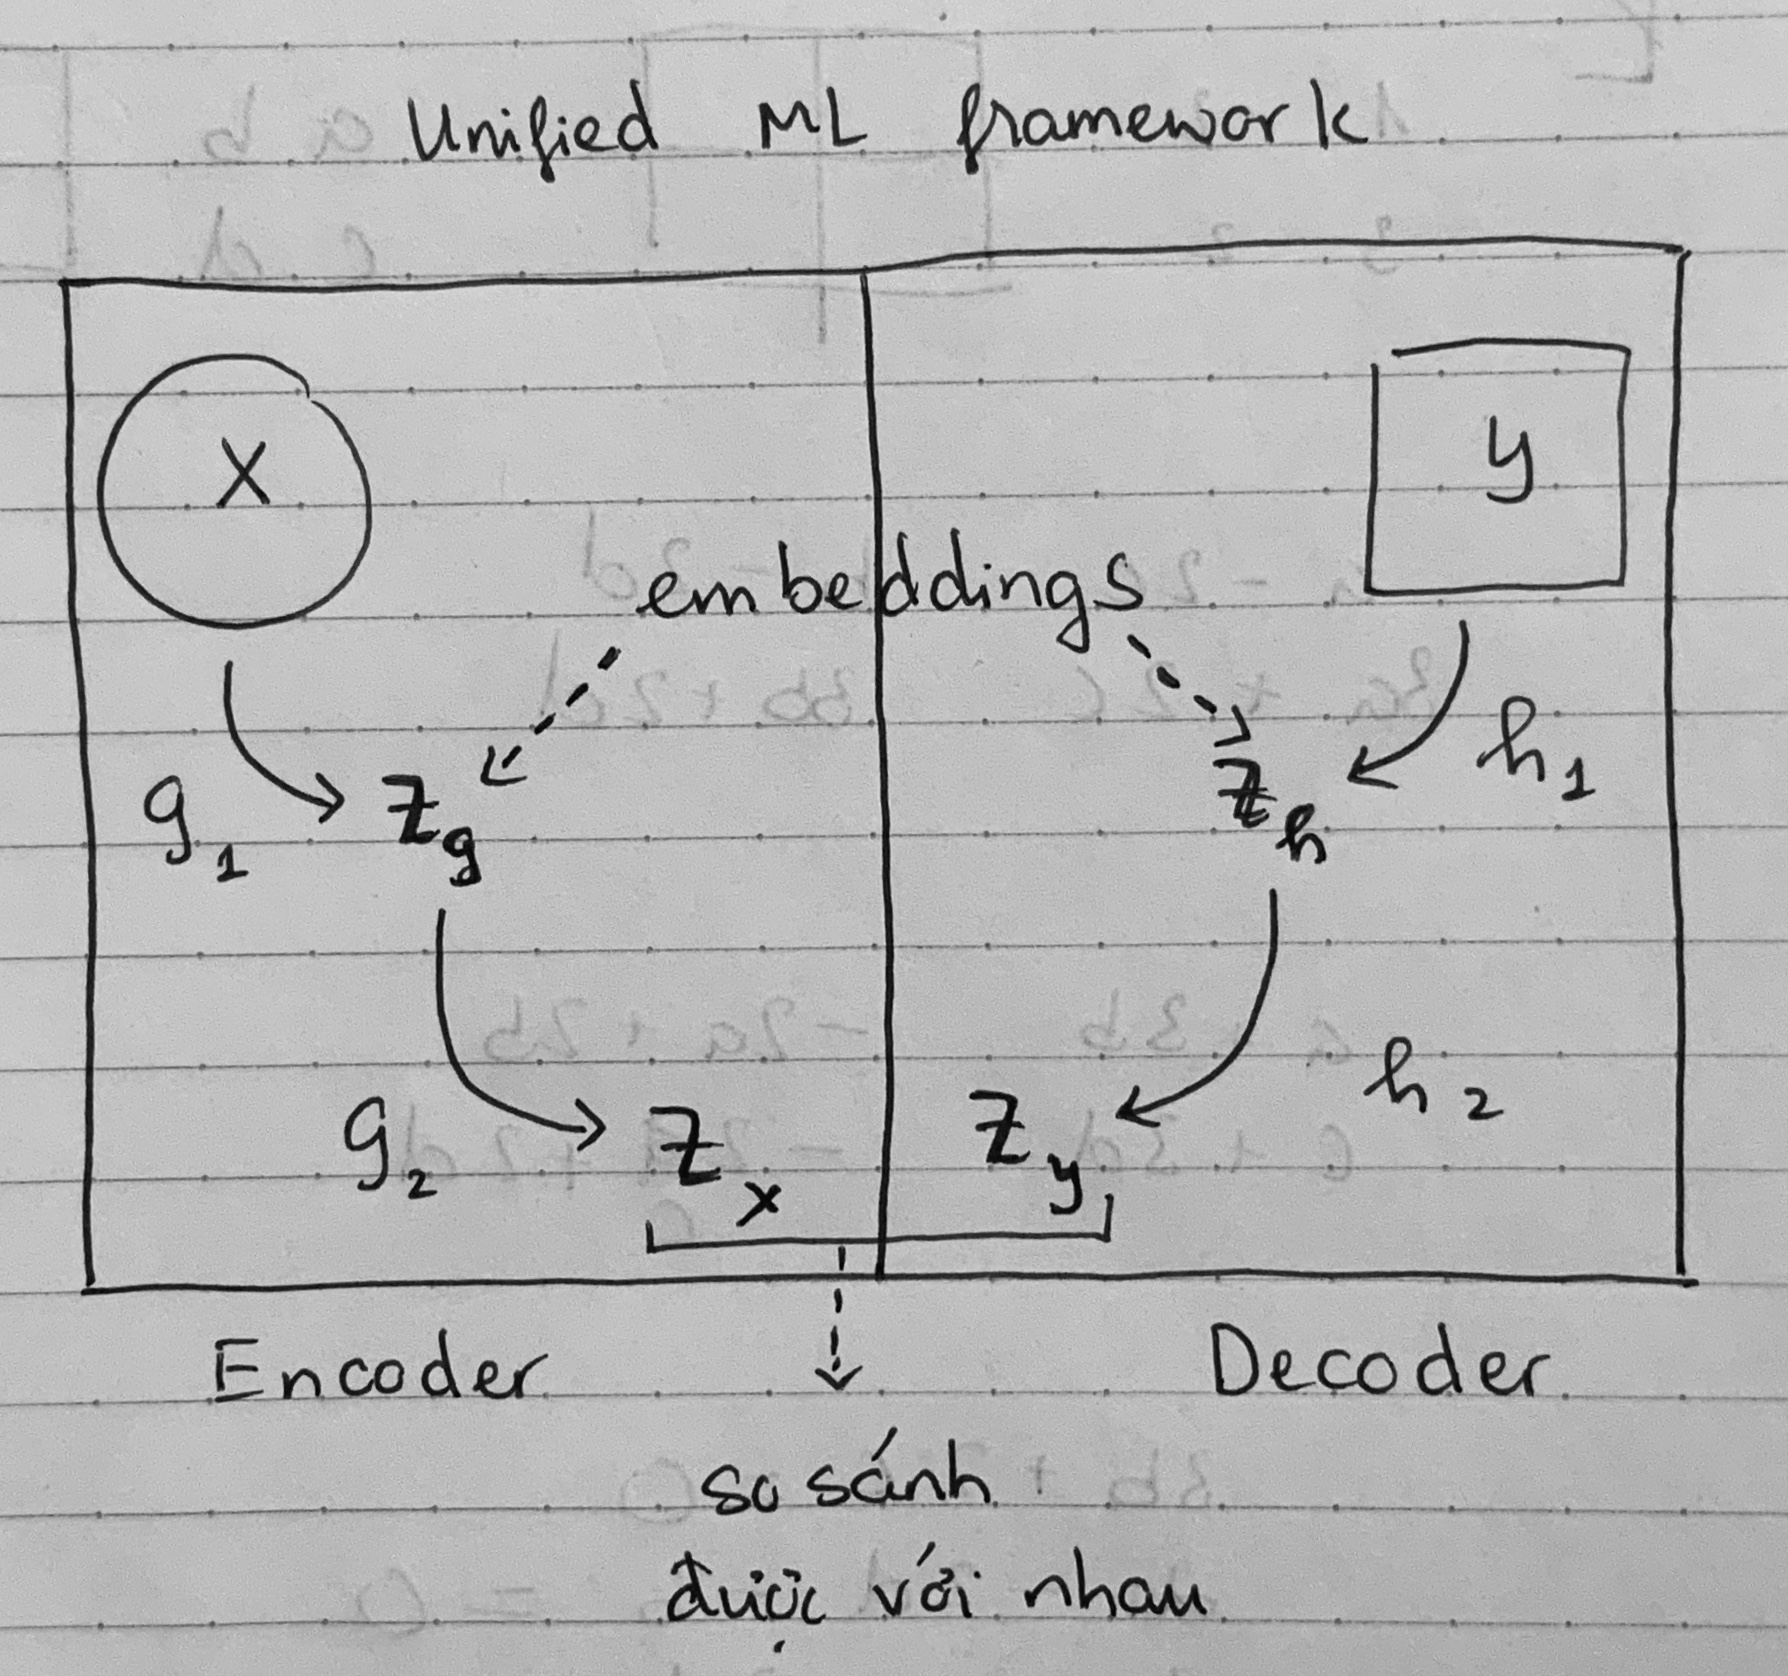 Unified ML framework
X
y
embeddings
g1
zg
zh
h1
g2
zx
zy
h2
Encoder
Decoder
so sánh
được với nhau